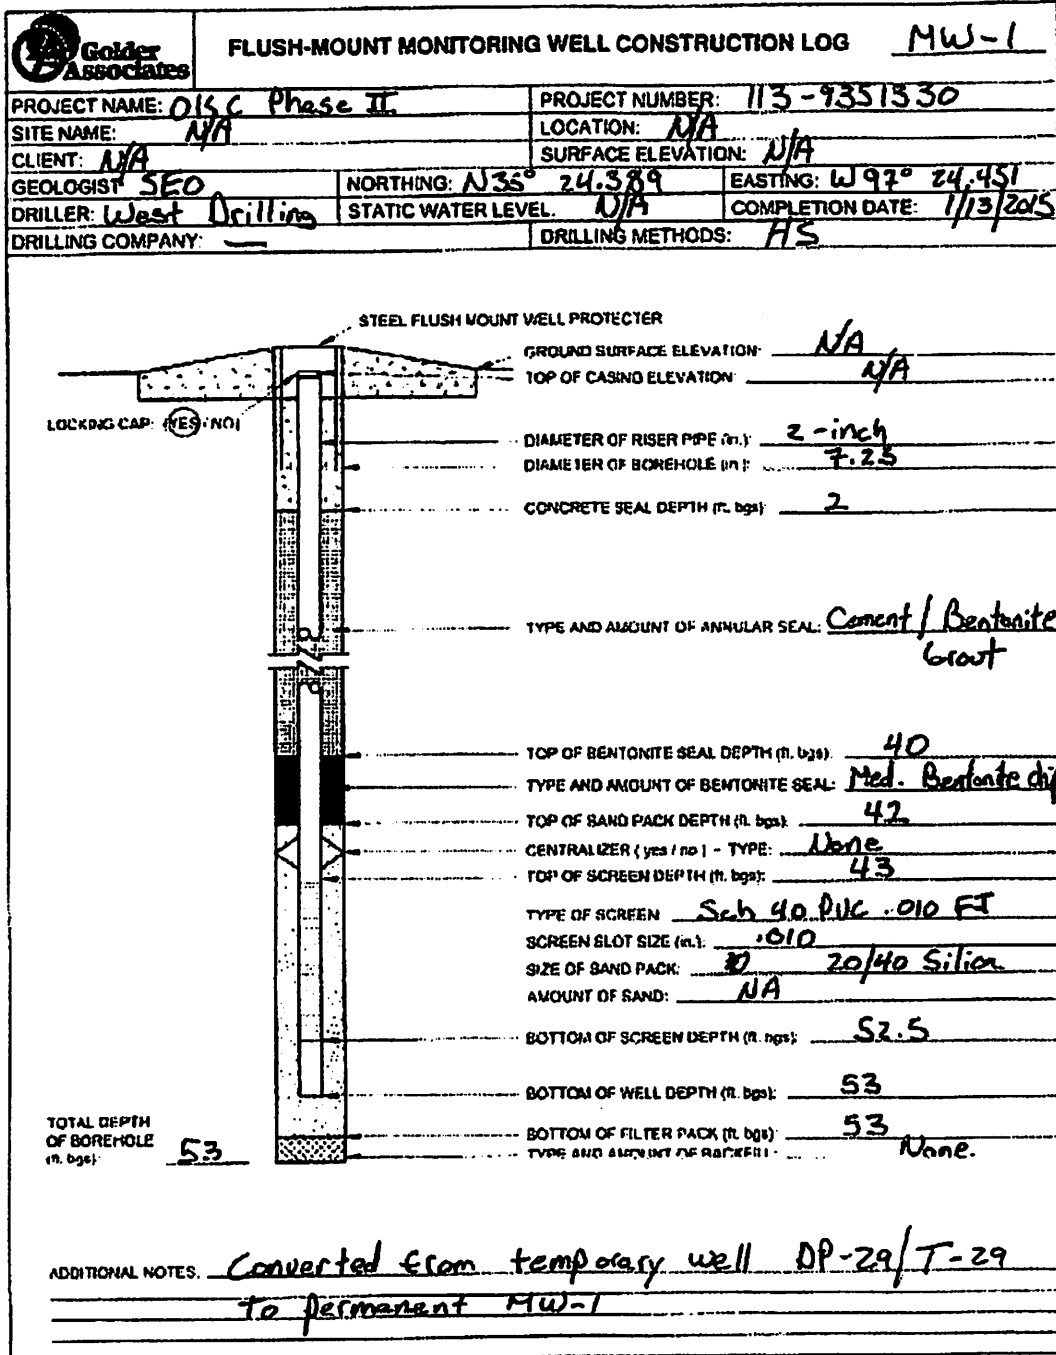 Golder Associates
FLUSH-MOUNT MONITORING WELL CONSTRUCTION LOG MW-1
PROJECT NAME: OISC Phase II PROJECT NUMBER: 113-9351330
SITE NAME: N/A LOCATION: N/A
CLIENT: N/A SURFACE ELEVATION: N/A
GEOLOGIST SEO NORTHING: N35° 24.389 EASTING: W 97° 24.451
DRILLER: West Drilling STATIC WATER LEVEL. N/A COMPLETION DATE: 1/13/2015
DRILLING COMPANY: — DRILLING METHODS: HS
STEEL FLUSH MOUNT WELL PROTECTER
GROUND SURFACE ELEVATION: N/A
TOP OF CASING ELEVATION N/A
LOCKING CAP: (YES / NO)
DIAMETER OF RISER PIPE (in.): 2-inch
DIAMETER OF BOREHOLE (in.): 7.25
CONCRETE SEAL DEPTH (ft. bgs) 2
TYPE AND AMOUNT OF ANNULAR SEAL: Cement / Bentonite
Grout
TOP OF BENTONITE SEAL DEPTH (ft. bgs). 40
TYPE AND AMOUNT OF BENTONITE SEAL: Med. Bentonite chip
TOP OF SAND PACK DEPTH (ft. bgs). 42
CENTRALIZER ( yes / no ) - TYPE: None
TOP OF SCREEN DEPTH (ft. bgs): 43
TYPE OF SCREEN Sch 40 PVC .010 FJ
SCREEN SLOT SIZE (in.): .010
SIZE OF SAND PACK: 20/40 Silica
AMOUNT OF SAND: NA
BOTTOM OF SCREEN DEPTH (ft. bgs): 52.5
BOTTOM OF WELL DEPTH (ft. bgs): 53
BOTTOM OF FILTER PACK (ft. bgs): 53
TYPE AND AMOUNT OF BACKFILL: None.
TOTAL DEPTH
OF BOREHOLE
(ft. bgs) 53
ADDITIONAL NOTES. Converted from temporary well DP-29/T-29
to permanent MW-1